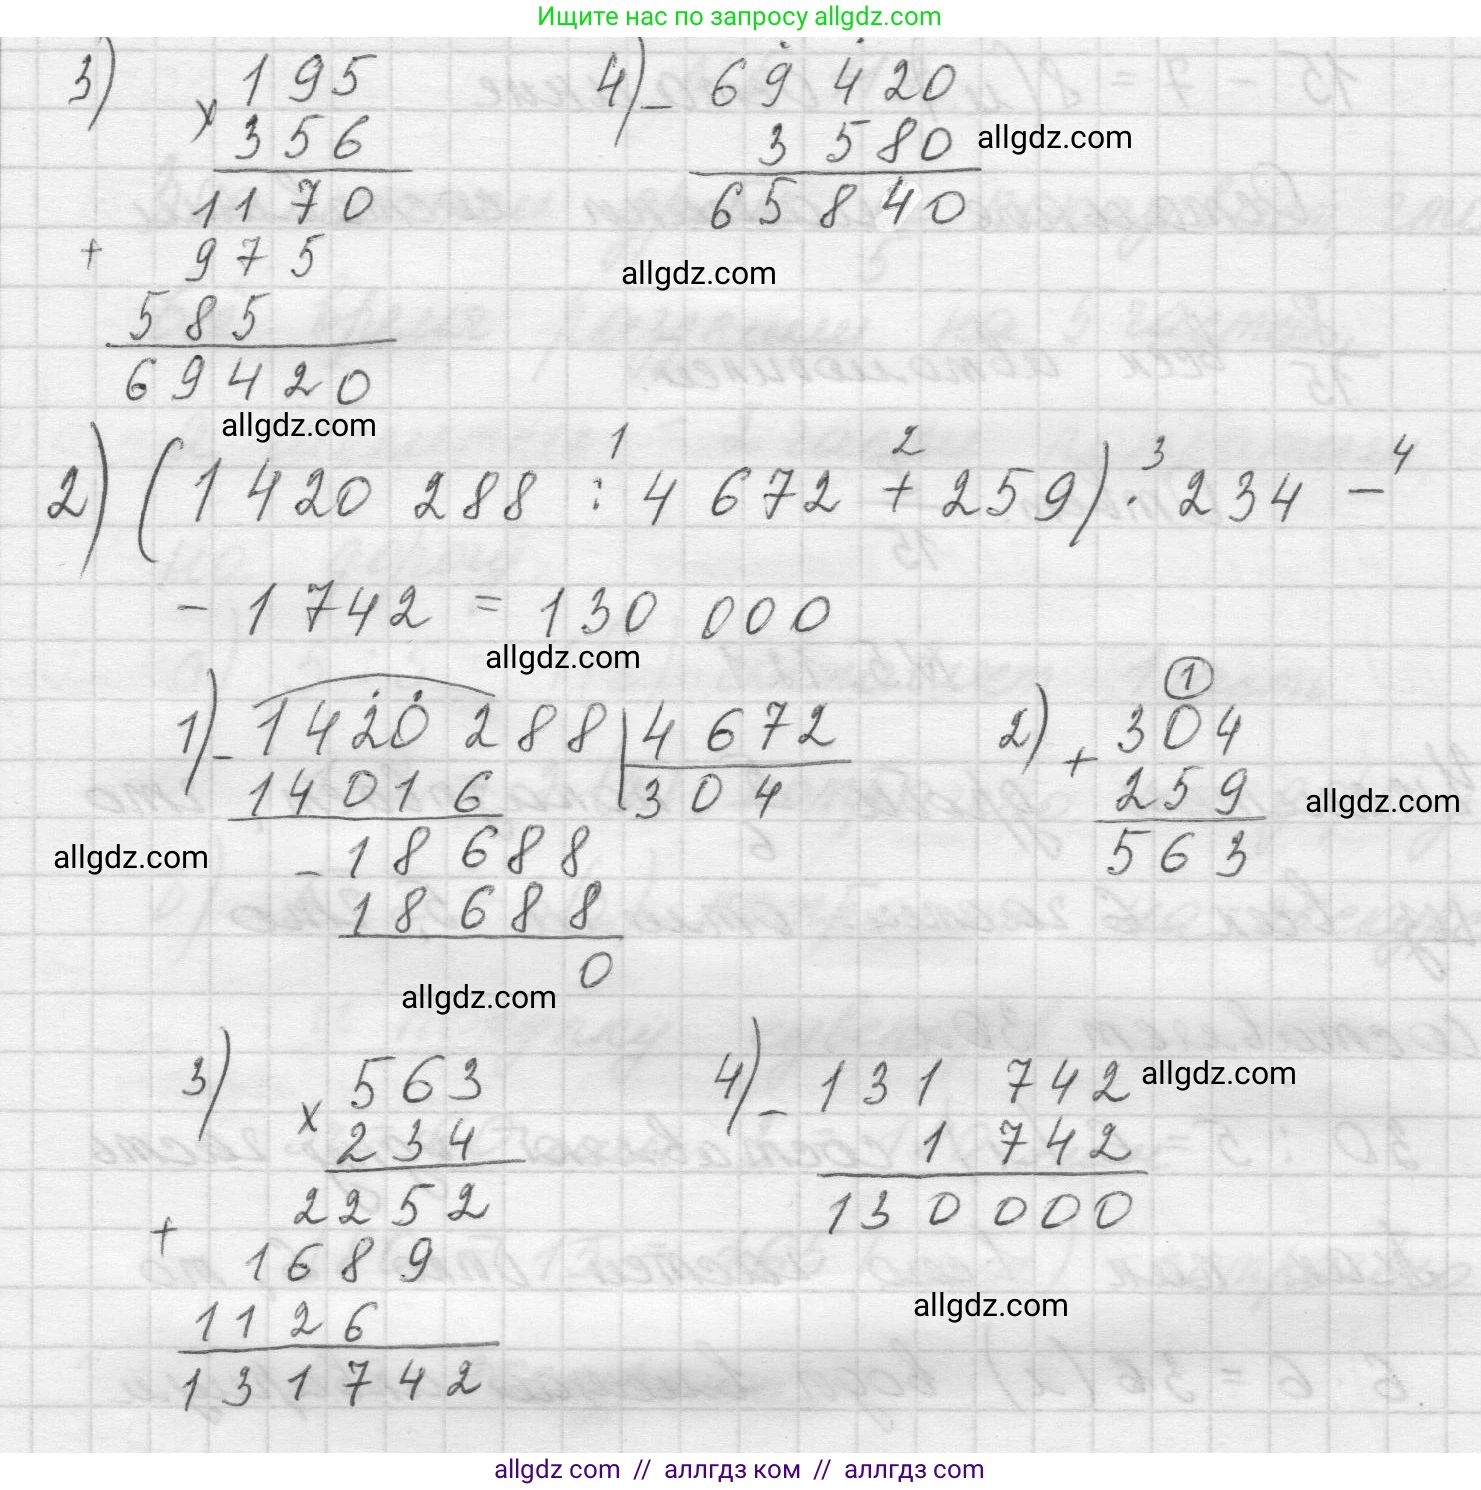 Ищите нас по запросу allgdz.com
3) × 195
356
1170
+ 975
585
69420
allgdz.com
4) - 69 420
3 580
65 840
allgdz.com
allgdz.com
1 2 3 4
2) (1 420 288 : 4 672 + 259) · 234 -
- 1 742 = 130 000
allgdz.com
1) - 1420 288 | 4 672
14016 304
- 18 688
18 688
0
allgdz.com
allgdz.com
2) + ① 304
259
563
allgdz.com
3) × 563
234
2252
+ 1689
1126
131742
4) - 131 742
1 742
130 000
allgdz.com
allgdz.com
allgdz com // аллгдз ком // аллгдз com